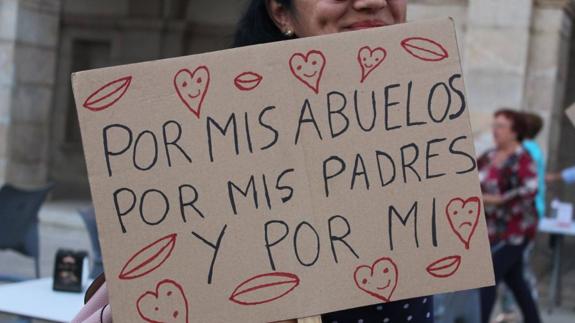 POR MIS ABUELOS
POR MIS PADRES
Y POR MÍ